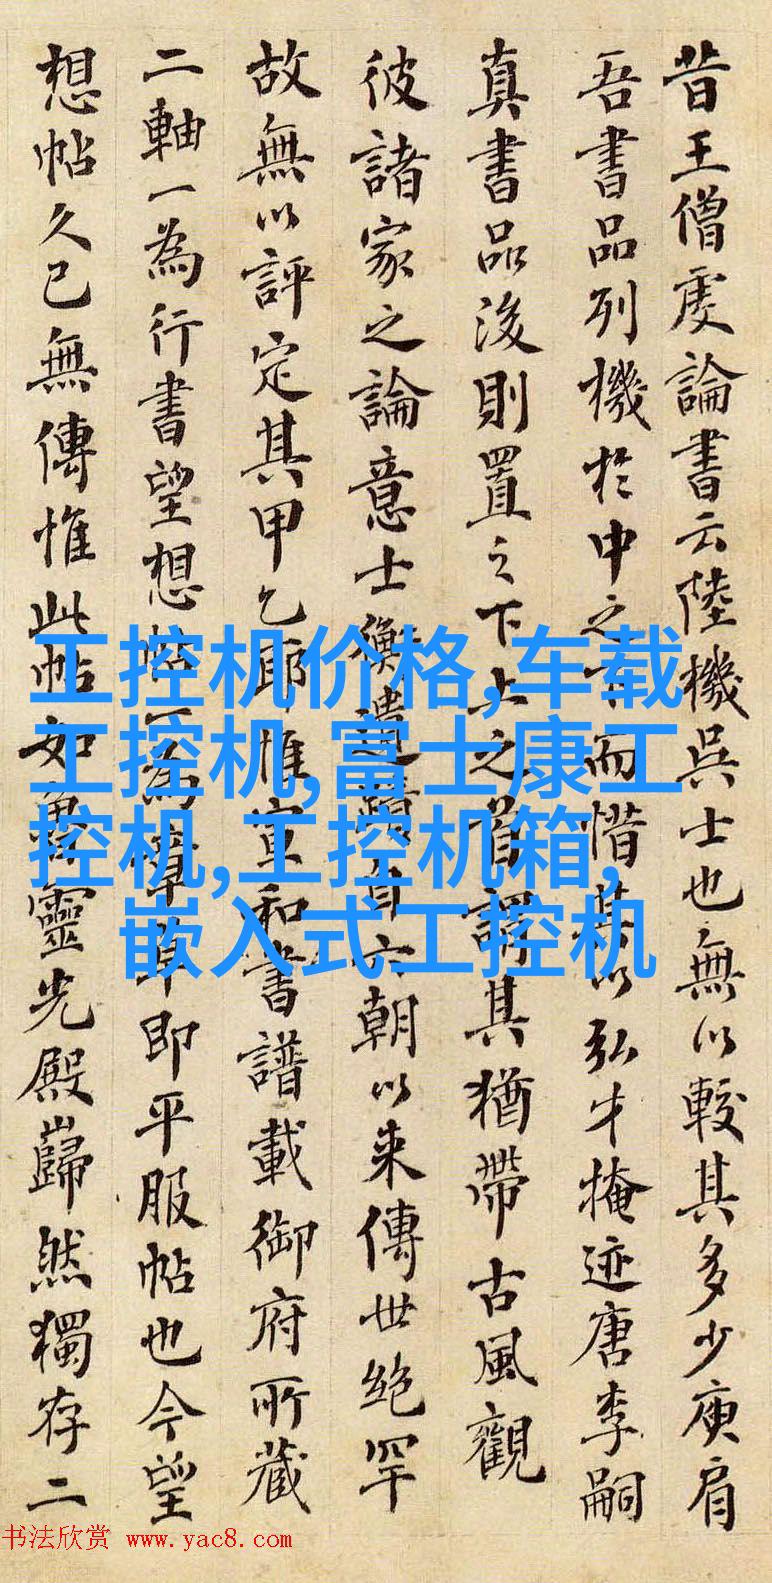 昔王僧虔論書云陸機吳士也無以較其多少庾肩
吾書品列機於中之下而惜其以弘才掩迹唐李嗣
真書品後則置之下上之首謂其猶帶古風觀
彼諸家之論意士衡遺蹟自六朝以来傳世絶罕
故無以評定其甲乙耶惟宣和書譜載御府所藏
二軸一為行書望想帖一為章草即平服帖也今望
想帖久已無傳惟此帖如魯靈光殿巋然獨存二
工控机价格,车载
工控机,富士康工
控机,工控机箱,
嵌入式工控机
书法欣赏 www.yac8.com